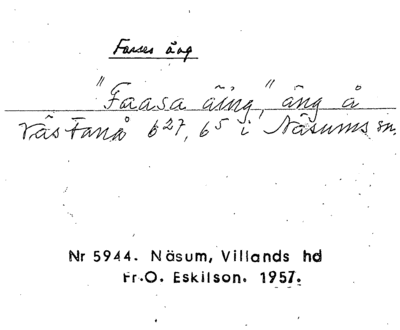 Farses äng
"Faasa äing", äng å
Västanå 6²⁷, 6⁵ i Näsums sn.
Nr 5944. Näsum, Villands hd
Fr.O. Eskilson. 1957.